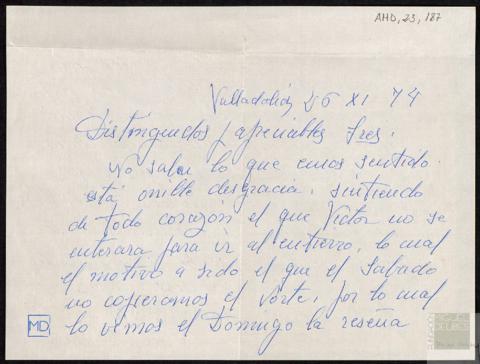 AHD, 23, 187
Valladolid 26 XI 74
Distinguidos y apreciables Sres.
No saben lo que emos sentido
está orrible desgracia, sintiendo
de todo corazón el que Victor no se
enterara para ir al entierro, lo cual
el motivo a sido el que el Sabado
no cogieramos el Norte, por lo cual
lo vimos el Domingo la reseña
MD